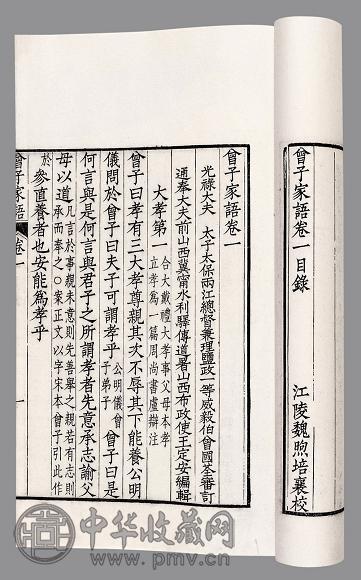 曾子家語卷一目錄
江陵魏煦培襄校
曾子家語卷一
光祿大夫 太子太保兩江總督兼理鹽政一等威毅伯曾國荃審訂
通奉大夫前山西冀甯水利驛傳道署山西布政使王定安編輯
大孝第一 合大戴禮大孝事父母本孝立孝爲一篇周尚書盧辯注
曾子曰孝有三大孝尊親其次不辱其下能養公明
儀問於曾子曰夫子可謂孝乎 公明儀曾子弟子 曾子曰是
何言與是何言與君子之所謂孝者先意承志諭父
母以道 凡言於事親未意則先善舉之親若有志則承而奉之○案正文以字宋本曾子引此作
於 參直養者也安能爲孝乎
曾子家語 卷一 一
中华收藏网
www.pmv.cn